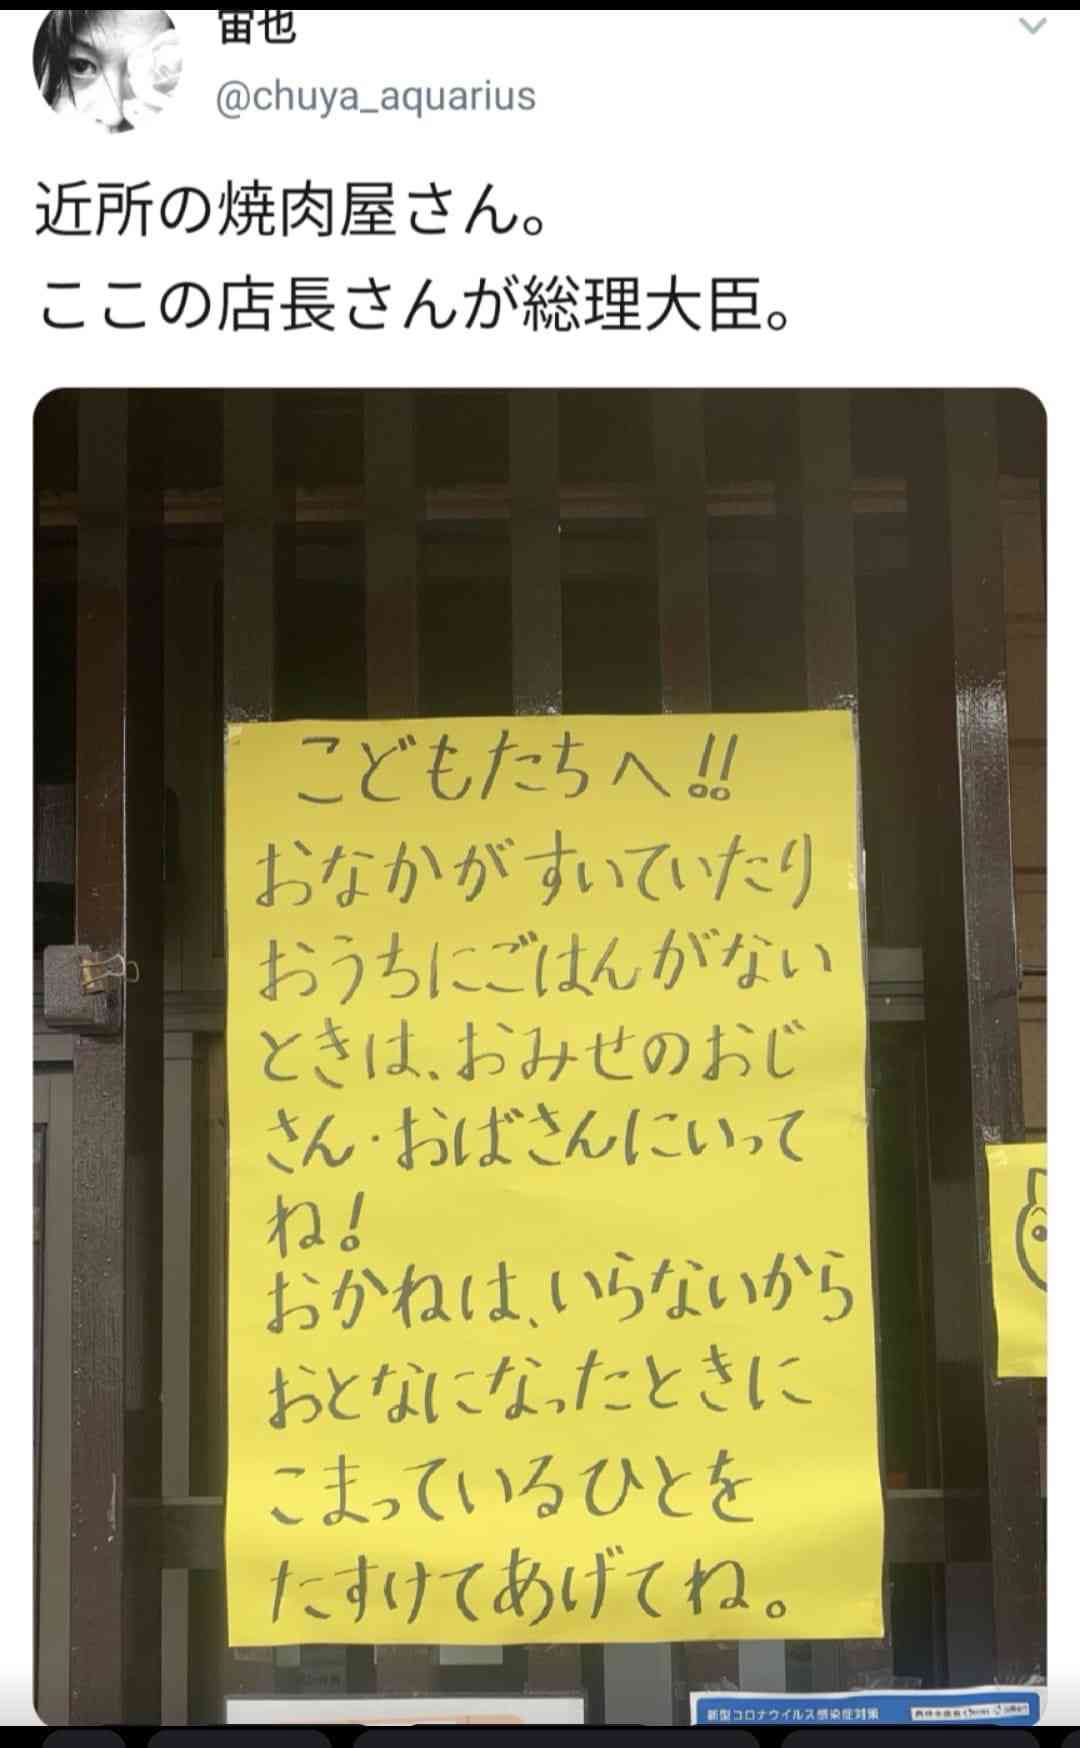 宙也
@chuya_aquarius
近所の焼肉屋さん。
ここの店長さんが総理大臣。
こどもたちへ!!
おなかがすいていたり
おうちにごはんがない
ときは、おみせのおじ
さん・おばさんにいって
ね!
おかねは、いらないから
おとなになったときに
こまっているひとを
たすけてあげてね。
新型コロナウイルス感染症対策